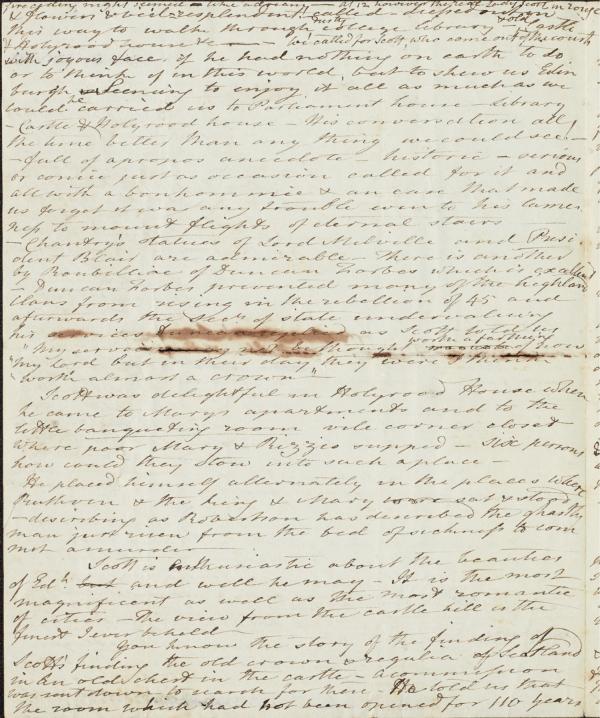 preceding night seemed
& flowers &
this way to walk through college library Castle & old
& Holyrood house &c — we called for Scott, who came out of the courts
with joyous face as if he had nothing on earth to do
or to think of in this world, but to shew us Edin
burgh seeming to enjoy it all as much as we
could he carried us to Parliament house — Library
— Castle & Holyrood house — His conversation all
the time better than any thing we could see —
— full of apropos anecdote — historic — serious
or comic just as occasion called for it and
all with a bonhommie & an ease that made
us forget it was any trouble even to his lame
ness to mount flights of eternal stairs
— Chantry's statues of Lord Melville and Presi
dent Blair are admirable — There is another
by Roubilliac of Duncan Forbes which is excellent
Duncan Forbes prevented many of the highland
clans from rising in the rebellion of 45 and
afterwards the Secy of state undervaluing
his services as Scott told us
"My services may not be thought worth a farthing now
"my Lord but in their day they were I think
"worth almost a crown"
Scott was delightful in Holyrood House when
he came to Mary's apartments and to the
little banqueting room vile corner closet
where poor Mary & Rizzio supped — Six persons
how could they stow into such a place —
He placed himself alternately in the places where
Ruthven & the king & Mary sat & stood
— describing as Robertson has described the ghastly
man just risen from the bed of sickness to com
mit a murder —
Scott is enthusiastic about the beauties
of Edh. and well he may — It is the most
magnificent as well as the most romantic
of cities — The view from the castle hill is the
finest I ever beheld —
You know the story of the finding of
Scott's finding the old crown & regalia of Scotland
in an old chest in the castle — a commission
was sent down to search for these He told us that
the room which had not been opened for 110 years